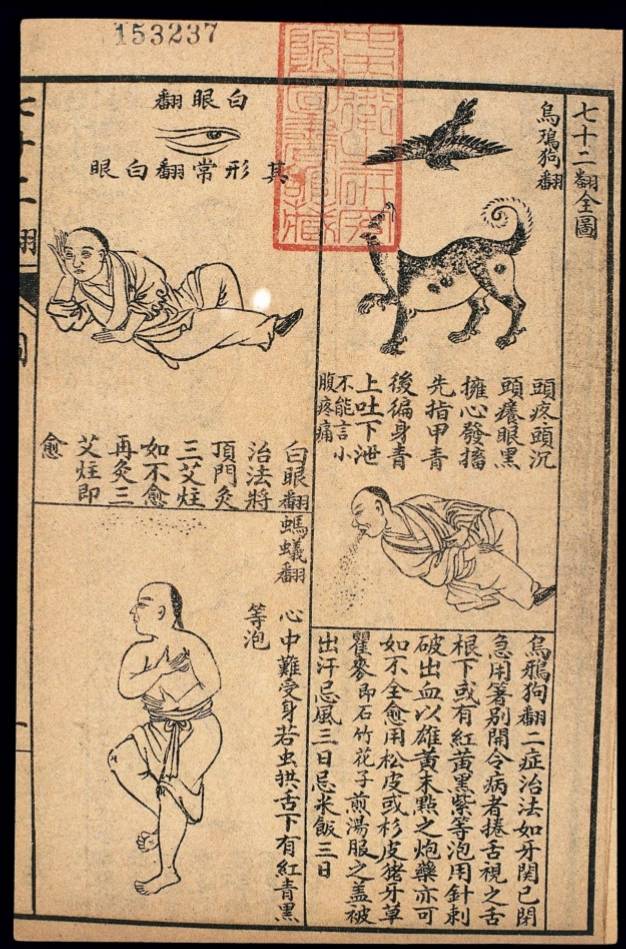 153237
七十二翻全圖
烏鴉狗翻
頭疼頭沉
頭癢眼黑
擁心發搐
先指甲青
後徧身青
上吐下泄
不能言小
腹疼痛
烏鴉狗翻二症治法如牙関已閉
急用箸別開令病者捲舌視之舌
根下或有紅黃黑紫等泡用針刺
破出血以雄黃末點之炮藥亦可
如不全愈用松皮或杉皮猪牙草
瞿麥即石竹花子煎湯服之盖被
出汗忌風三日忌米飯三日
白眼翻
其形常翻白眼
白眼翻
治法將
頂門灸
三艾炷
如不愈
再灸三
艾炷即
愈
螞蟻翻
心中難受身若虫拱舌下有紅青黑
等泡
七十二翻